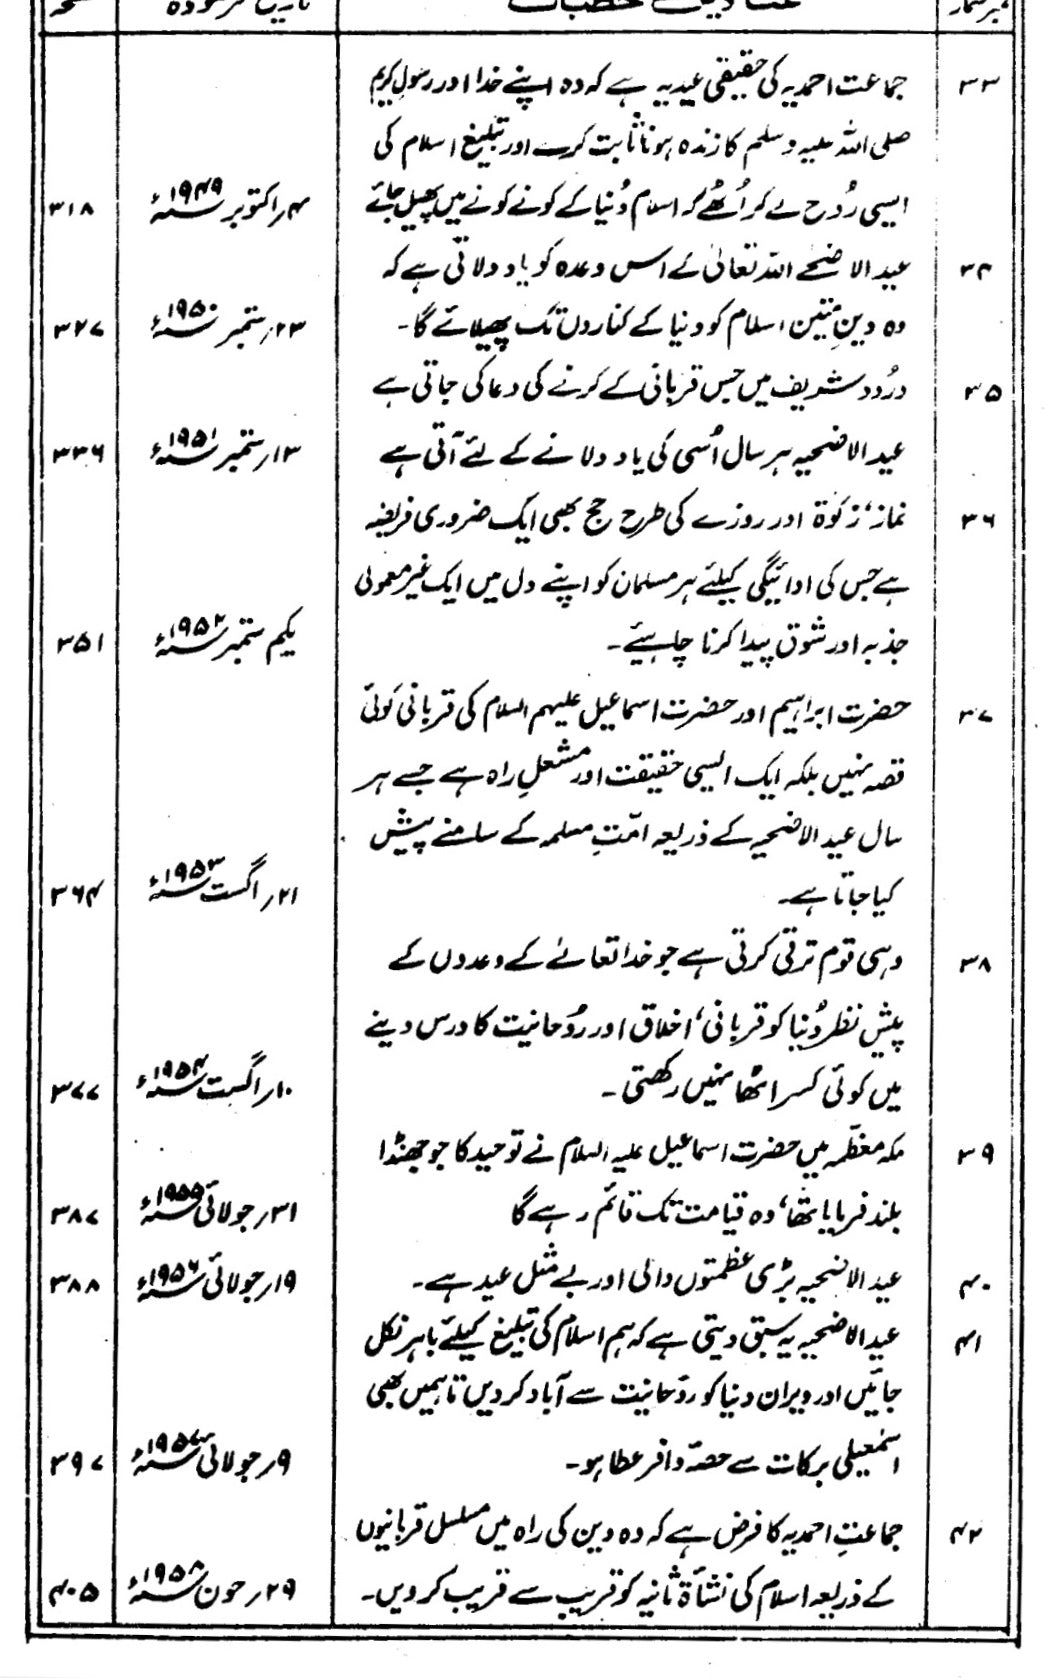 نمبر شمار عناوین خطبات تاریخ فرمودہ صفحہ
۳۳ جماعت احمدیہ کی حقیقی عید یہ ہے کہ وہ اپنے خدا اور رسولِ کریم
صلی اللہ علیہ وسلم کا زندہ ہونا ثابت کرے اور تبلیغ اسلام کی
ایسی رُوح لے کر اُٹھے کہ اسلام دُنیا کے کونے کونے میں پھیل جائے ۴؍اکتوبر ۱۹۴۹ء ۳۱۸
۳۴ عید الاضحےٰ اللہ تعالیٰ کے اس وعدہ کو یاد دلاتی ہے کہ
وہ دینِ متین اسلام کو دنیا کے کناروں تک پھیلائے گا۔ ۲۳؍ستمبر ۱۹۵۰ء ۳۲۷
۳۵ درُود شریف میں جس قربانی کے کرنے کی دعا کی جاتی ہے
عید الاضحیہ ہر سال اُسی کی یاد دلانے کے لئے آتی ہے ۱۳؍ستمبر ۱۹۵۱ء ۳۳۶
۳۶ نماز، زکوٰۃ اور روزے کی طرح حج بھی ایک ضروری فریضہ
ہے جس کی ادائیگی کیلئے ہر مسلمان کو اپنے دل میں ایک غیر معمولی
جذبہ اور شوق پیدا کرنا چاہیئے۔ یکم ستمبر ۱۹۵۲ء ۳۵۱
۳۷ حضرت ابراہیم اور حضرت اسماعیل علیہم السلام کی قربانی کوئی
قصہ نہیں بلکہ ایک ایسی حقیقت اور مشعلِ راہ ہے جسے ہر
سال عید الاضحیہ کے ذریعہ امّتِ مسلمہ کے سامنے پیش
کیا جاتا ہے۔ ۲۱؍اگست ۱۹۵۳ء ۳۶۴
۳۸ وہی قوم ترقی کرتی ہے جو خدا تعالےٰ کے وعدوں کے
پیشِ نظر دُنیا کو قربانی، اخلاق اور رُوحانیت کا درس دینے
میں کوئی کسر اٹھا نہیں رکھتی۔ ۱۰؍اگست ۱۹۵۴ء ۳۷۷
۳۹ مکہ معظّمہ میں حضرت اسماعیل علیہ السلام نے توحید کا جو جھنڈا
بلند فرمایا تھا، وہ قیامت تک قائم رہے گا ۳۱؍جولائی ۱۹۵۵ء ۳۸۷
۴۰ عید الاضحیہ بڑی عظمتوں والی اور بے مثل عید ہے۔ ۱۹؍جولائی ۱۹۵۶ء ۳۸۸
۴۱ عید الاضحیہ یہ سبق دیتی ہے کہ ہم اسلام کی تبلیغ کیلئے باہر نکل
جائیں اور ویران دنیا کو روحانیت سے آباد کر دیں تا ہمیں بھی
اسمٰعیلی برکات سے حصّہ وافر عطا ہو۔ ۹؍جولائی ۱۹۵۷ء ۳۹۷
۴۲ جماعتِ احمدیہ کا فرض ہے کہ وہ دین کی راہ میں مسلسل قربانیوں
کے ذریعہ اسلام کی نشأۃ ثانیہ کو قریب سے قریب کر دیں۔ ۲۹؍جون ۱۹۵۸ء ۴۰۵